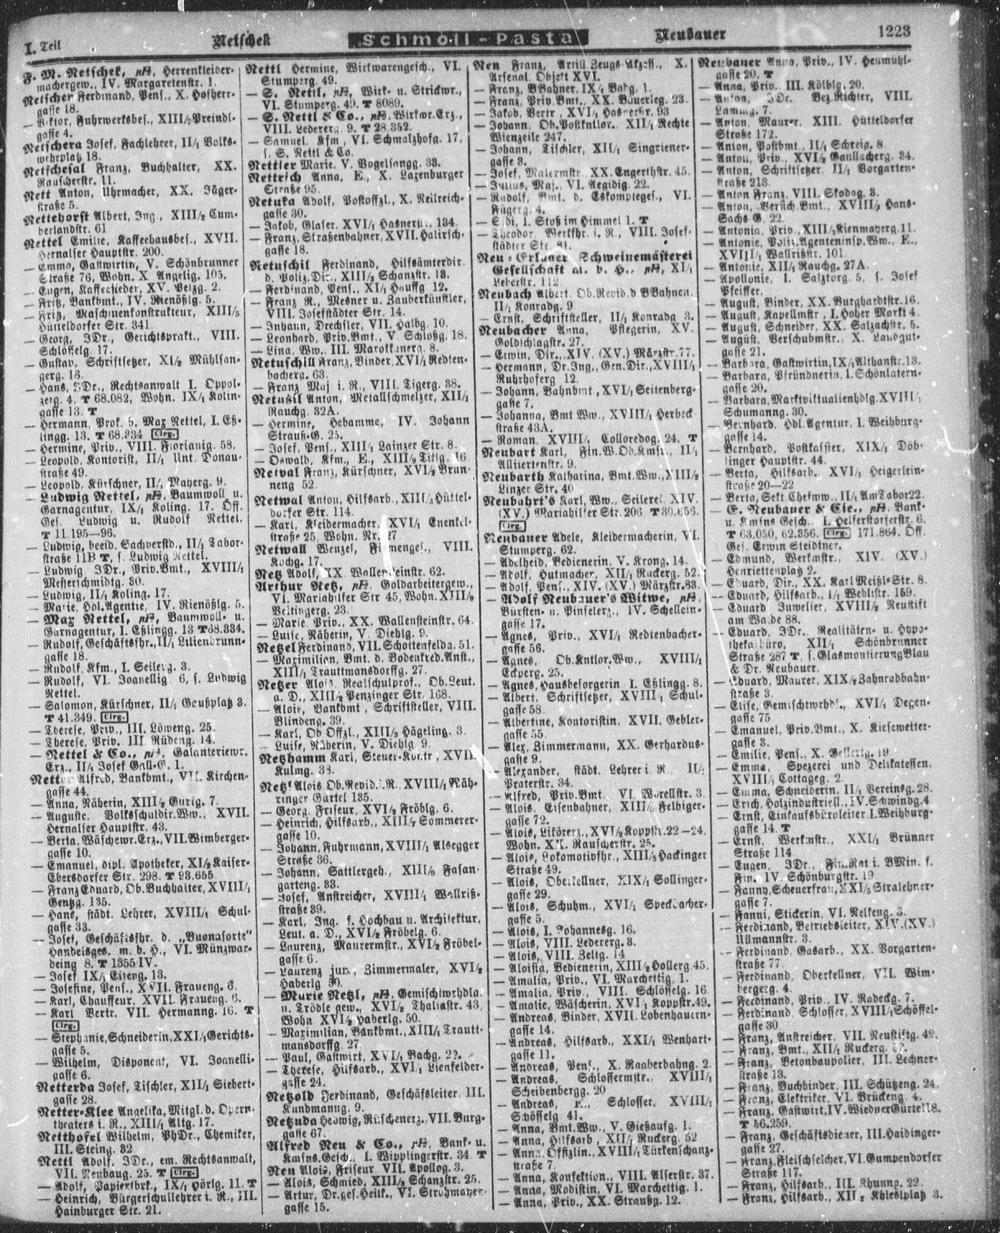 I. Teil
Netschek
Schmoll-Pasta
Neubauer
1223
F. M. Netschek, Herrenkleider-
machergew., IV. Margaretenstr. 1.
Netscher Ferdinand, Pens., X. Hofherr-
gasse 18.
— Viktor, Fuhrwerksbes., XIII/5 Preindl-
gasse 4.
Netschera Josef, Fachlehrer, II/1 Volks-
wehrplatz 18.
Netschesal Franz, Buchhalter, XX.
Rauscherstr. 11.
Nett Anton, Uhrmacher, XX. Jäger-
straße 5.
Nettehorst Albert, Ing., XIII/2 Cum-
berlandstr. 61
Nettel Emilie, Kaffeehausbes., XVII.
Hernalser Hauptstr. 200.
— Emma, Gastwirtin, V. Schönbrunner
Straße 76, Wohn. X. Angelig. 105.
— Eugen, Kaffeesieder, XV. Pelzg. 2.
— Fritz, Bankbmt., IV. Rienößlg. 5.
— Fritz, Maschinenkonstrukteur, XIII/5
Hütteldorfer Str. 341.
— Georg, JDr., Gerichtsprakt., VIII.
Schlösselg. 17.
— Gustav, Schriftsetzer, XI/2 Mühlsan-
gerg. 16.
— Hans, JDr., Rechtsanwalt I. Oppol-
zerg. 4. T 68.082, Wohn. IX/1 Kolin-
gasse 13. T
— Hermann, Prok. b. Max Nettel, I. Eß-
lingg. 13. T 68.334 Clrg.
— Hermine, Priv., VIII. Florianig. 58.
— Leopold, Kontorist, II/1 Unt. Donau-
straße 49.
— Leopold, Kürschner, II/1 Mayerg. 9.
— Ludwig Nettel, Baumwoll- u.
Garnagentur, IX/1 Koling. 17. Off.
Ges. Ludwig u. Rudolf Nettel.
T 11.195—96.
— Ludwig, beeid. Sachverstd., II/1 Tabor-
straße 11B T, s. Ludwig Nettel.
— Ludwig, JDr., Priv.Bmt., XVIII/1
Messerschmidtg. 30.
— Ludwig, II/1 Koling. 17.
— Marie, Hdl.Agentie, IV. Rienößlg. 5.
— Max Nettel, Baumwoll- u.
Garnagentur, I. Eßlingg. 13 T 68.334.
— Rudolf, Geschäftsfhr., II/1 Lilienbrunn-
gasse 18.
— Rudolf, Kfm., I. Seilerg. 3.
— Rudolf, VI. Joanellig. 6, s. Ludwig
Nettel.
— Salomon, Kürschner, II/1 Geußplatz 3.
T 41.349. Clrg.
— Therese, Priv., III. Löweng. 25.
— Therese, Priv. III. Rüdeng. 14.
— Nettel & Co., Galanteriewr.
Erz., II/1 Josef Gall-G. 1.
Netter Alfred, Bankbmt., VII. Kirchen-
gasse 44.
— Anna, Näherin, XIII/2 Gurig. 7.
— Auguste, Volksschuldir.Ww., XVII.
Hernalser Hauptstr. 43.
— Berta, Wäschewr.Erz., VII. Wimberger-
gasse 10.
— Emanuel, dipl. Apotheker, XI/2 Kaiser-
Ebersdorfer Str. 298. T 93.655.
— Franz Eduard, Ob.Buchhalter, XVIII/1
Gentzg. 135.
— Hans, städt. Lehrer, XVIII/1 Schul-
gasse 33.
— Josef, Geschäftsfhr. d. „Buonaforte“
Handelsges. m. b. H., VI. Münzwar-
deing 8. T 1355 IV.
— Josef IX/1 Eiseng. 13.
— Josefine, Pens., XVII. Fraueng. 6.
— Karl, Chauffeur, XVII. Fraueng. 6.
— Karl Vertr. VII. Hermanng. 16. T
Clrg.
— Stephanie, Schneiderin, XXI/1 Gerichts-
gasse 5.
— Wilhelm, Disponent, VI. Joanelli-
gasse 6.
Netterda Josef, Tischler, XII/1 Siebert-
gasse 28.
Netter-Klee Angelika, Mitgl. d. Opern-
theaters i. R., XIII/1 Altg. 17.
Netthofel Wilhelm, PhDr., Chemiker,
III. Steing. 32
Nettl Adolf, JDr., em. Rechtsanwalt,
VII. Neubaug. 25. T Clrg.
— Adolf, Papierfbrk., IX/1 Hörlg. 11. T
— Heinrich, Bürgerschullehrer i. R., III.
Hainburger Str. 21.
Nettl Hermine, Wirkwarengesch., VI.
Stumperg. 49.
— S. Nettl, Wirk- u. Strickwr.,
VI. Stumperg. 49. T 8089.
— S. Nettl & Co., Wirkwr.Erz.,
VIII. Lederera. 9. T 28.352.
— Samuel, Kfm., VI. Schmalzhofg. 17,
s. S. Nettl & Co.
Nettler Marie, V. Vogelsangg. 38.
Nettrich Anna, E., X. Laxenburger
Straße 95.
Netuka Adolf, Postoffzl., X. Neilreich-
gasse 30.
— Jakob, Glaser, XVI/1 Hasnerstr. 134.
— Franz, Straßenbahner, XVII. Halirsch-
gasse 18.
Netuschil Ferdinand, Hilfsämterdir.
d. Poliz.Dir., XIII/2 Schanzstr. 18.
— Ferdinand, Pens., XI/1 Hauffg 12.
— Franz R., Mesner u. Zauberkünstler,
VIII. Josefstädter Str. 14.
— Johann, Drechsler, VII. Halbg. 10.
— Leonhard, Priv.Bmt., V. Schloßg. 18.
— Lina, Ww. III. Marokkanerg. 8.
Netuschill Franz, Binder XVI/1 Redten-
bacherg. 63.
— Franz Maj i. R., VIII. Tigerg. 38.
Netusil Anton, Metallschmelzer, XII/1
Rauchg. 32A.
— Hermine, Hebamme, IV. Johann
Strauß-G. 25.
— Josef, Pens., XIII/1 Lainzer Str. 8.
— Oswald, Kfm., E., XIII/2 Titlg. 16
Netval Franz, Kürschner, XVI/2 Brun-
neng 52.
Netwal Anton, Hilfsarb., XIII/3 Hüttel-
dorfer Str. 114.
— Karl, Kleidermacher, XVI/1 Enenkel-
straße 25, Wohn. Nr. 27
Netwall Wenzel, Firmengef., VIII.
Kochg. 17.
Netz Adolf, XX. Wallensteinstr. 62.
Arthur Netz, Goldarbeitergew.,
VI. Mariahilfer Str 45, Wohn. XIII/2
Veitingerg. 23.
— Marie Priv., XX. Wallensteinstr. 64.
— Luise, Näherin, V. Diehlg. 9.
Netzel Ferdinand, VII. Schottenfeldg. 51.
— Maximilian, Bmt. d. Bodenkred.Anst.,
XIII/1 Trauttmansdorffg. 27.
Netzer Alois, Realschulprof., Ob.Leut.
a. D., XIII/2 Penzinger Str. 168.
— Alois, Bankbmt., Schriftsteller, VIII.
Blindeng. 39.
— Karl, Ob.Offzl., XIII/3 Hägeling. 3.
— Luise, Näherin, V. Diehlg 9.
Netzhamm Karl, Steuer-Kontr., XVII.
Kulmg. 38.
Netzl Alois Ob.Revid. i. R. XVIII/1 Näh-
ringer Gürtel 135.
— Georg, Friseur, XVI/1 Fröblg. 6.
— Heinrich, Hilfsarb., XIII/2 Sommerer-
gasse 10.
— Johann, Fuhrmann, XVIII/1 Alsegger
Straße 36.
— Johann, Sattlergeh., XIII/3 Fasan-
garteng. 33.
— Josef, Anstreicher, XVIII/1 Wallriß-
straße 39.
— Karl, Ing. f. Hochbau u. Architektur,
Leut. a. D., XVI/2 Fröbelg. 6.
— Laurenz, Maurermstr., XVI/2 Fröbel-
gasse 6.
— Laurenz jun., Zimmermaler, XVI/2
Haberlg 50.
— Marie Netzl, Gemischtwrhdlg.
u. Trödlergew., XVI/2 Thaliastr. 43,
Wohn XVI/2 Haberlg. 50.
— Maximilian, Bankbmt., XIII/1 Trautt-
mansdorffg. 27.
— Paul, Gastwirt, XVI/1 Bachg. 22.
— Therese, Hilfsarb., XVI/1 Lienfelder-
gasse 24.
Netzold Ferdinand, Geschäftsleiter III.
Kundmanng. 9.
Netzuda Hedwig, Rüschenerz., VII. Burg-
gasse 67.
Alfred Neu & Co., Bank- u.
Kmsns.Gesch., I. Wipplingerstr. 34. T
Neu Alois, Friseur, VII. Apollog. 3.
— Alois, Schmied, XIII/2 Schanzstr. 25.
— Artur, Dr. ges. Heilk., VI. Strohmayer-
gasse 15.
Neu Franz, Artill.Zeugs-Akzess., X.
Arsenal, Objekt XVI.
— Franz, BBahner, IX/1 Badg. 1.
— Franz, Priv.Bmt., XX. Bäuerleg. 23.
— Jakob, Vertr., XVI/1 Hasnerstr. 93
— Johann, Ob.Postkntlor., XII/1 Rechte
Wienzeile 247.
— Johann, Tischler, XII/1 Singriener-
gasse 3.
— Josef, Malermstr., XX. Engerthstr. 45.
— Julius, Maj., VI. Aegidig. 22.
— Rudolf, Bmt. d. Eskomptegес., VI.
Fügerg. 4.
— Sidi, I. Stoß im Himmel 1. T
— Theodor, Werkfhr. i. R., VIII. Josef-
städter Str. 81.
Neu-Erlaaer Schweinemästerei
Gesellschaft m. b. H., XI/1
Leberstr. 112.
Neubach Albert, Ob.Revid. d BBahnen,
II/1 Konradg. 9
— Ernst, Schriftsteller, II/1 Konradg 3.
Neubacher Anna, Pflegerin, XV.
Goldschlagstr. 27.
— Erwin, Dir., XIV. (XV.) Märzstr. 77.
— Hermann, Dr.Ing., Gen.Dir., XVIII/1
Ruhrhoferg 12.
— Johann, Bahnbmt., XVI/1 Seitenberg-
gasse 7.
— Johanna, Bmt Ww., XVIII/1 Herbeck
straße 43A.
— Roman, XVIII/1 Colloredog. 24. T
Neubart Karl, Fin.W.Ob.Kmsr., II/1
Alliiertenstr. 9.
Neubarth Katharina, Bmt.Ww., XIII/2
Linzer Str. 40
Neubarth's Karl, Ww., Seilerei, XIV.
(XV.) Mariahilfer Str. 206. T 30.656.
Clrg.
Neubauer Adele, Kleidermacherin, VI.
Stumperg. 62.
— Adelheid, Bedienerin, V. Krong. 14.
— Adolf, Hutmacher, XII/1 Ruckerg. 52.
— Adolf, Pens., XIV. (XV.) Märzstr. 83.
— Adolf Neubauer's Witwe,
Bürsten- u. Pinselerz., IV. Schellein-
gasse 17.
— Agnes, Priv., XVI/1 Redtenbacher-
gasse 56.
— Agnes, Ob.Kntlor.Ww., XVIII/1
Eckperg. 25.
— Agnes, Hausbesorgerin I. Eßlingg. 8.
— Albert, Schriftsetzer, XVIII/1 Schul-
gasse 58.
— Albertine, Kontoristin, XVII. Gebler-
gasse 55.
— Alex, Zimmermann, XX. Gerhardus-
gasse 9.
— Alexander, städt. Lehrer i. R., II/1
Praterstr. 34.
— Alfred, Priv.Bmt., VI. Worellstr. 3.
— Alois, Eisenbahner, XIII/3 Felbiger-
gasse 72.
— Alois, Likörerz., XVI/1 Koppstr. 22—24.
Wohn. XIX/1 Rauscherstr. 25.
— Alois, Lokomotivfhr., XIII/5 Hackinger
Straße 49.
— Alois, Oberkellner, XIX/1 Sollinger-
gasse 29.
— Alois, Schuhm., XVI/1 Speckbacher-
gasse 5.
— Alois, I. Johannesg. 16.
— Alois, VIII. Ledererg. 3.
— Alois, VIII. Zeltg. 14
— Aloisia, Bedienerin, XIII/2 Hollerg 45.
— Amalia, Priv., VI. Marchettig. 1.
— Amalia, Priv., VIII. Schlösselg. 16.
— Amalie, Wäscherin, XVI/1 Koppstr. 49.
— Andreas, Binder, XVII. Lobenhauern-
gasse 14.
— Andreas, Hilfsarb., XXI/1 Wenhart-
gasse 11.
— Andreas, Pens., X. Raaberbahng. 2.
— Andreas, Schlossermstr., XVIII/1
Scheibenbergg. 20
— Andreas, E., Schlosser, XVIII/1
Schösselg 41.
— Anna, Bmt.Ww., V. Gießaufg. 1.
— Anna, Hilfsarb., XII/1 Ruckerg. 52
— Anna, Offizlin., XVIII/1 Türkenschanz-
straße 7.
— Anna, Konfektion, VIII. Alserstr. 37.
— Anna, Modistin, VI. Marchettig. 1.
— Anna, Priv., XX. Straußg. 12.
Neubauer Anna, Priv., IV. Heumühl-
gasse 20. T
— Anna, Priv. III. Kölblg. 20.
— Anton, JDr. Bez.Richter, VIII.
Lammg. 7.
— Anton, Maurer, XIII. Hütteldorfer
Straße 172.
— Anton, Postbmt., II/1 Schreig. 8
— Anton, Priv., XVI/2 Gaullacherg. 34.
— Anton, Schriftsetzer, II/1 Vorgarten-
straße 213.
— Anton Franz, VIII. Skodag. 3.
— Anton, Versich.Bmt., XVIII/1 Hans-
Sachs G. 22.
— Antonia, Priv., XIII/1 Kienmayerg. 11.
— Antonie, Poliz.Agenteninsp.Ww., E.,
XVIII/1 Wallrißstr. 101.
— Antonie, XII/1 Rauchg. 27A.
— Apollonie, I. Salztorg. 5, s. Josef
Pfeiffer.
— August, Binder, XX. Burghardtstr. 16.
— August, Kapellmstr., I. Hoher Markt 4.
— August, Schneider, XX. Salzachstr. 5.
— August, Verschubmstr., X. Landgut-
gasse 21.
— Barbara, Gastwirtin, IX/1 Althanstr. 13.
— Barbara, Pfründnerin, I. Schönlatern-
gasse 20.
— Barbara, Marktviktualienhdlg. XVIII/1
Schumanng. 30.
— Bernhard, Hdl.Agentur, I. Weihburg-
gasse 14.
— Bernhard, Postkassier, XIX/2 Döb-
linger Hauptstr. 44.
— Berta, Hilfsarb., XVI/1 Heigerlein-
straße 20—22
— Berta, Sekt.Chefsww., II/1 Am Tabor 22.
— E. Neubauer & Cie., Bank-
u. Kmsns Gesch. I. Helferstorferstr. 6.
T 63.050, 62.356. Clrg. 171.864. Off.
Ges. Erwin Steidtner.
— Edmund, Werkmstr., XIV. (XV.)
Henriettenplatz 2.
— Eduard, Dir., XX. Karl Meißl-Str. 8.
— Eduard, Hilfsarb., I/1 Weblistr. 159.
— Eduard Juwelier, XVIII/2 Neustift
am Walde 88.
— Eduard, JDr. Realitäten- u. Hypo-
thekabüro, XII/1 Schönbrunner
Straße 287 T, s. Glasmontierung Blau
& Dr. Neubauer.
— Eduard, Maurer, XIX/2 Zahnradbahn-
straße 3.
— Elise, Gemischtwrhdl., XVI/1 Degen-
gasse 75
— Emanuel, Priv.Bmt., X. Kiesewetter-
gasse 3.
— Emilie, Pens., X. Gellertg. 19
— Emma, Spezerei und Delikatessen,
XVIII/1 Cottageg. 2.
— Emma, Schneiderin, II/1 Vereinsg. 28.
— Erich, Holzindustriell., IV. Schwindg. 4
— Ernst, Einkaufsbüroleiter, I. Weihburg-
gasse 14. T
— Ernst, Werkmstr., XXI/1 Brünner
Straße 114
— Eugen, JDr., Fin.Rat i. BMin. f.
Fin., IV. Schönburgstr. 19
— Fanny, Scheuerfrau, XXI/5 Stralehner-
gasse 7.
— Fanni, Stickerin, VI. Nelkeng. 3.
— Ferdinand, Betriebsleiter, XIV. (XV.)
Ullmannstr. 3.
— Ferdinand, Gasarb., XX. Vorgarten-
straße 77.
— Ferdinand, Oberkellner, VII. Wim-
bergerg. 4.
— Ferdinand, Priv., IV. Radeckg. 7.
— Ferdinand, Schlosser, XVIII/1 Schöffel-
gasse 30
— Franz, Anstreicher, VII. Neustiftg. 49.
— Franz, Bmt., XII/1 Ruckerg. 52.
— Franz, Betonbaupolier, III. Lechner-
straße 13.
— Franz, Buchbinder, III. Schützeng. 24.
— Franz, Elektriker, VI. Brückeng. 4.
— Franz, Gastwirt, IV. Wiedner Gürtel 18.
T 56.259.
— Franz, Geschäftsdiener, III. Haidinger-
gasse 27.
— Franz, Fleischselcher, VI. Gumpendorfer
Straße 117.
— Franz, Hilfsarb., III. Khunng. 22.
— Franz, Hilfsarb., XII/2 Khleslplatz 3.